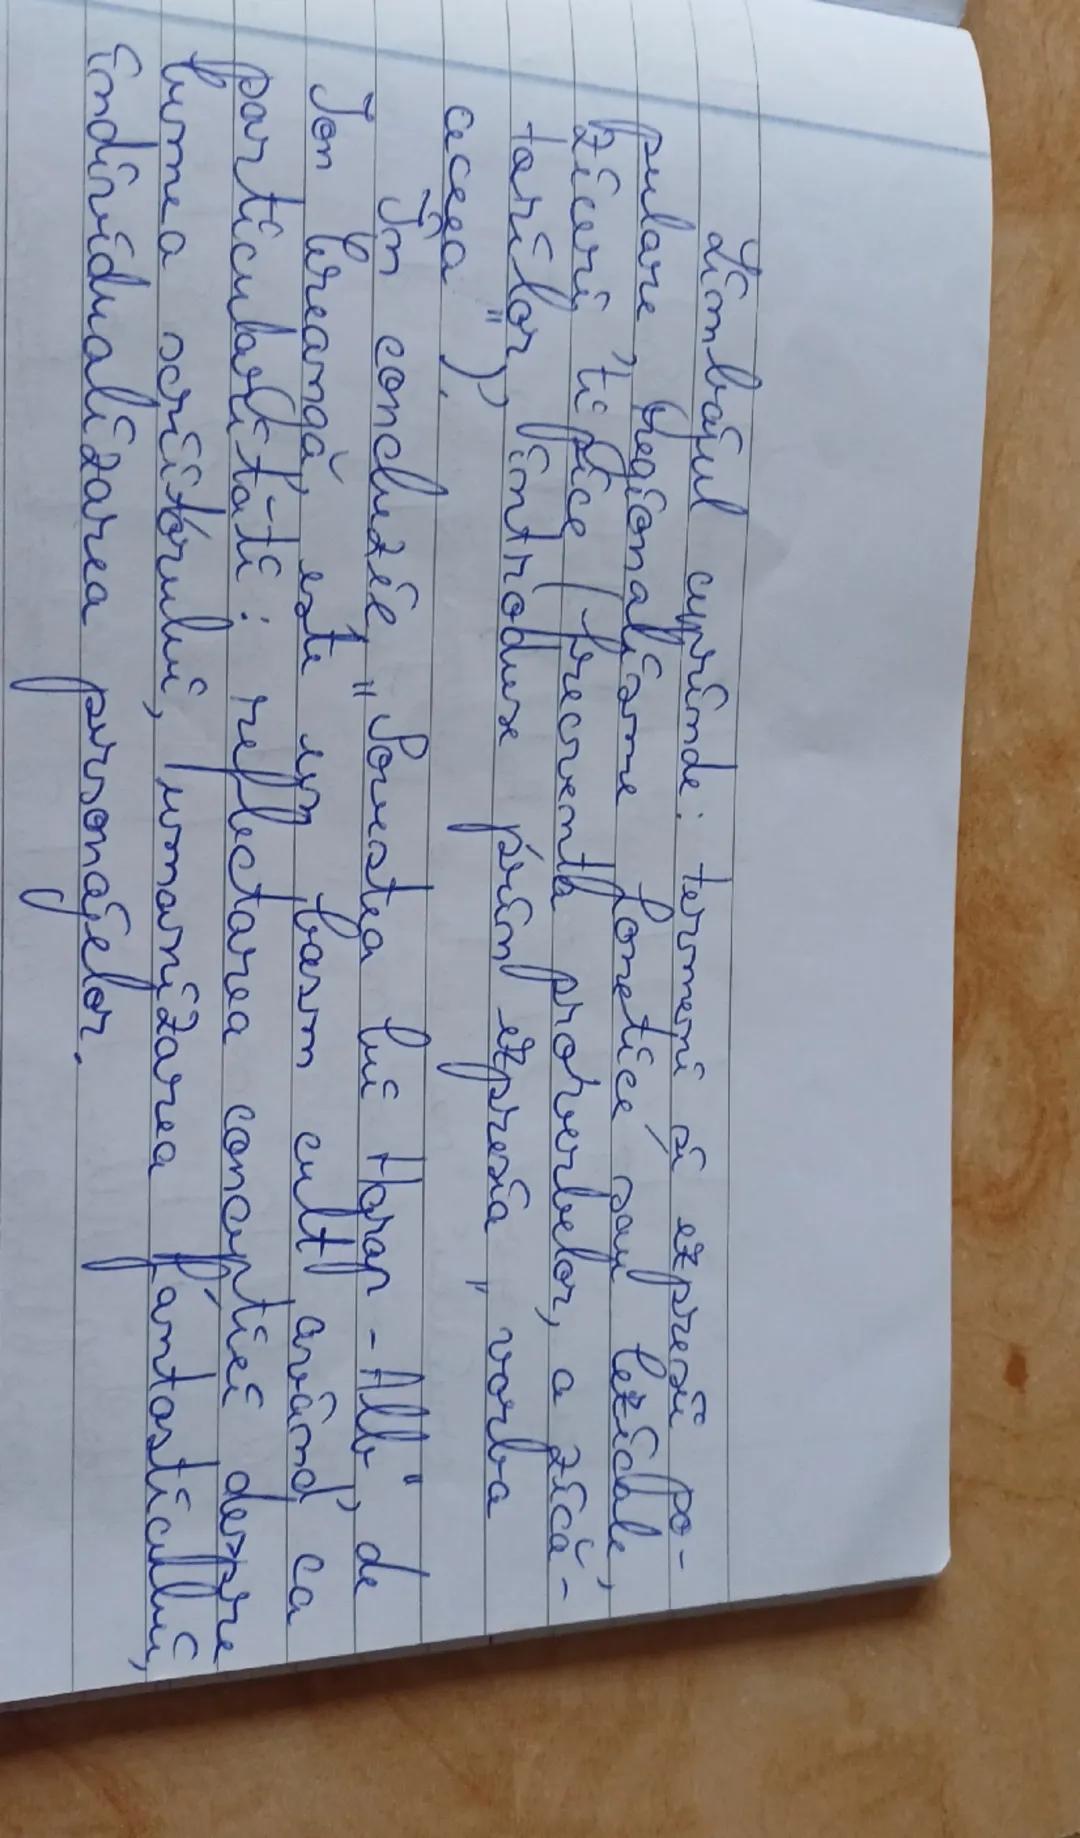 Limbajul cuprinde: termeni și expresii po-
pulare, regionalisme fonetice sau lexicale,
ziceri tipice (frecvența proverbelor, a zică-
torilor, introduse prin expresia „vorba
aceea").
În concluzie, „Povestea lui Harap-Alb", de
Ion Creangă, este un basm cult având ca
particularități: reflectarea concepției despre
lume a scriitorului, umanizarea fantasticului,
individualizarea personajelor.